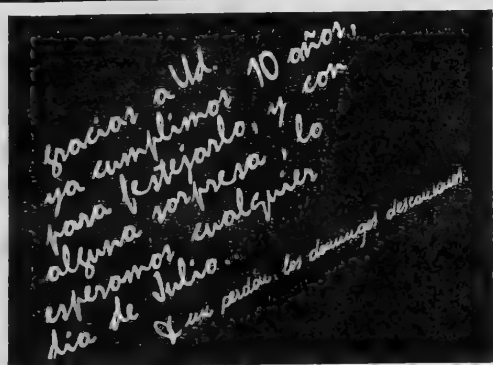 gracias a Ud.
ya cumplimos 10 años,
para festejarlo, y con
alguna sorpresa, lo
esperamos cualquier
dia de Julio.
mi perdón, los domingos descansamos.